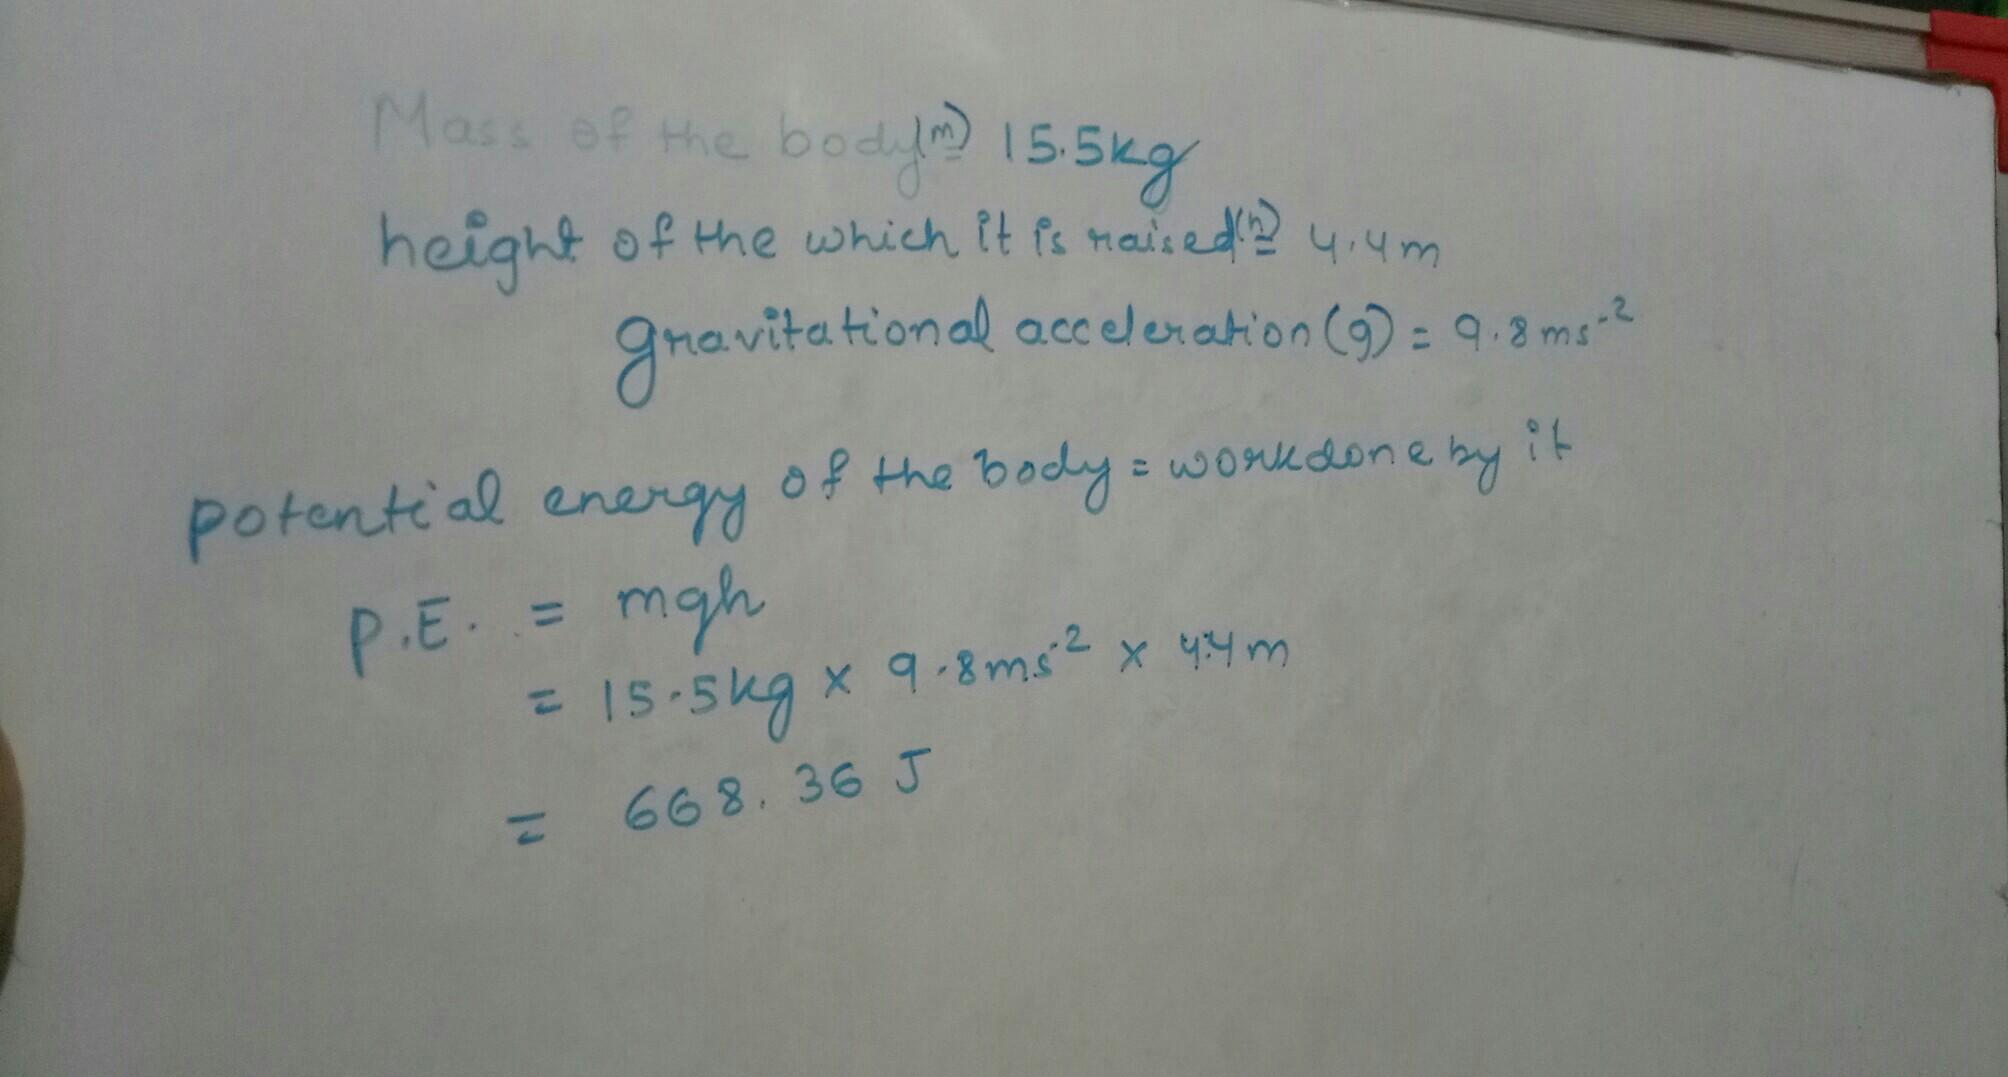 Mass of the body(m)= 15.5kg
height of the which it is raised(h)= 4.4m
gravitational acceleration (g) = 9.8 ms⁻²
potential energy of the body = workdone by it
P.E. = mgh
= 15.5kg x 9.8ms⁻² x 4.4m
= 668.36 J